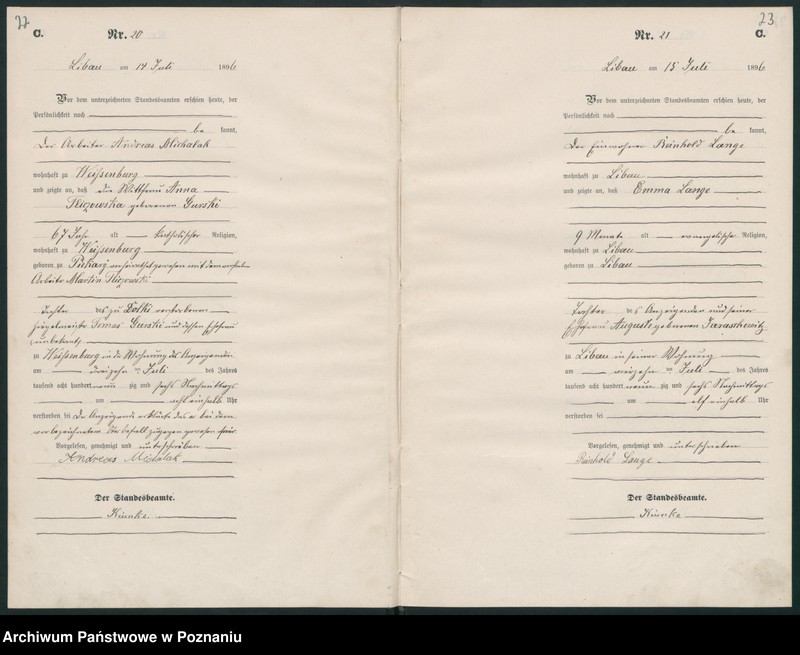 22
C.
Nr. 20
Libau am 14 Juli 1896
Vor dem unterzeichneten Standesbeamten erschien heute, der
Persönlichkeit nach
be kannt,
Der Arbeiter Andreas Michalak
wohnhaft zu Weißenburg
und zeigte an, daß die Wittfrau Anna
geborenen Gurski
67 Jahr alt katholischer Religion,
wohnhaft zu Weißenburg
geboren zu verheirathet gewesen mit dem
Arbeiter Martin
Tochter des zu verstorbenen
Ziegelmeister Tomas Gurski und dessen Ehefrau
unbekannt
zu Weißenburg in der Wohnung des Anzeigenden
am dreizehn ten Juli des Jahres
tausend acht hundert neun zig und sechs Nachmittags
um acht einhalb Uhr
verstorben sei Der Anzeigende erklärte das er bei dem
vorbezeichneten Sterbefall zugegen gewesen sei.
Vorgelesen, genehmigt und unterschrieben
Andreas Michalak
Der Standesbeamte.
Künke.
23
C.
Nr. 21
Libau am 15 Juli 1896
Vor dem unterzeichneten Standesbeamten erschien heute, der
Persönlichkeit nach
be kannt,
Der Einwohner Reinhold Lange
wohnhaft zu Libau
und zeigte an, daß Emma Lange
9 Monate alt evangelische Religion,
wohnhaft zu Libau
geboren zu Libau
Tochter des Anzeigenden und seiner
Ehefrau Auguste geborenen
zu Libau in seiner Wohnung
am vierzehn ten Juli des Jahres
tausend acht hundert neun zig und sechs Nachmittags
um elf einhalb Uhr
verstorben sei
Vorgelesen, genehmigt und unterschrieben
Reinhold Lange
Der Standesbeamte.
Künke
Archiwum Państwowe w Poznaniu